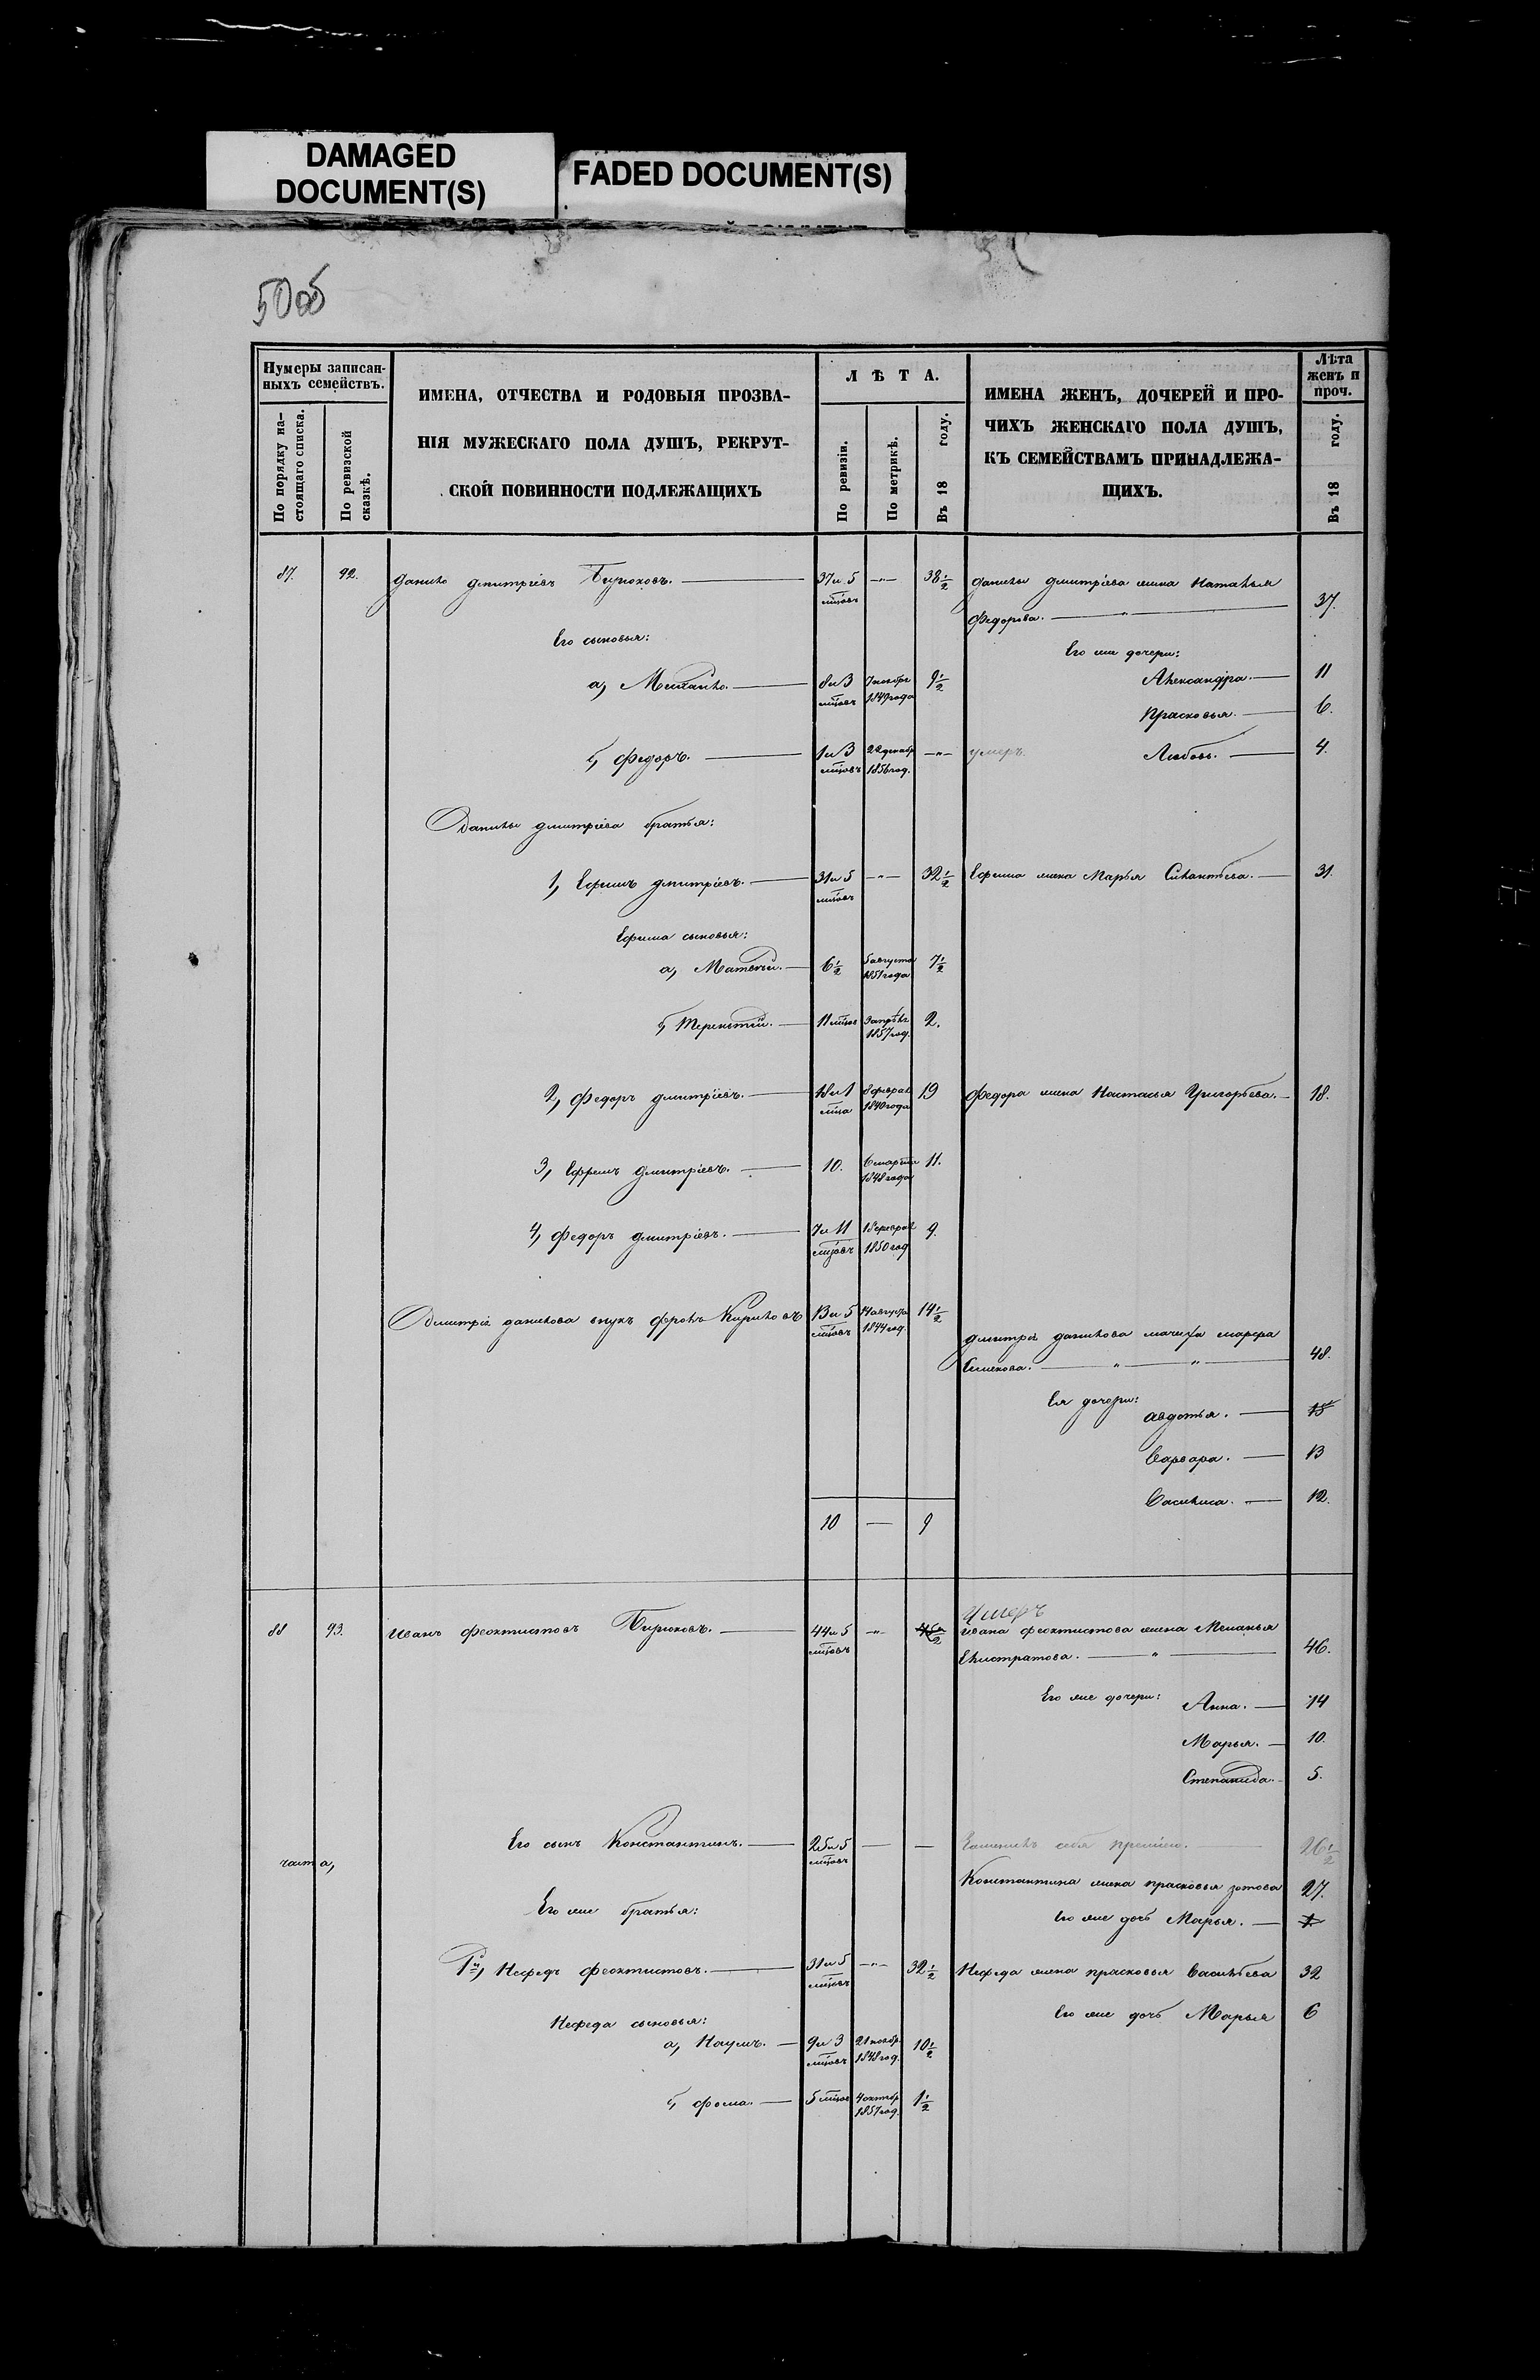 DAMAGED
DOCUMENT(S)
FADED DOCUMENT(S)
50об
Нумеры записан-
ныхъ семействъ.
По порядку на-
стоящаго списка.
По ревизской
сказкѣ.
ИМЕНА, ОТЧЕСТВА И РОДОВЫЯ ПРОЗВА-
НІЯ МУЖЕСКАГО ПОЛА ДУШЪ, РЕКРУТ-
СКОЙ ПОВИННОСТИ ПОДЛЕЖАЩИХЪ
ЛѢТА.
По ревизіи.
По метрикѣ.
Въ 18 году.
ИМЕНА ЖЕНЪ, ДОЧЕРЕЙ И ПРО-
ЧИХЪ ЖЕНСКАГО ПОЛА ДУШЪ,
КЪ СЕМЕЙСТВАМЪ ПРИНАДЛЕЖА-
ЩИХЪ.
Лѣта
женъ и
проч.
Въ 18 году.
87. 92. Данило Дмитріевъ Бирюковъ. 37 и 5 мцовъ —"— 38 1/2 Данилы Дмитріева жена Наталья
Федорова. " 37.
Его сыновья: Его же дочери:
а, Михайло. 8 и 3 мцовъ 7 ноября 1849 года 9 1/2 Александра. 11
Прасковья. 6.
б, Федоръ. 1 и 3 мцовъ 22 декабр 1856 год. —"— умеръ. Любовь. 4.
Данилы Дмитріева братья:
1, Ефимъ Дмитріевъ. 31 и 5 мцовъ —"— 32 1/2 Ефима жена Марья Силантьева. 31.
Ефима сыновья:
а, Матвѣй. 6 1/2 5 августа 1851 года 7 1/2
б, Терентій. 11 мцов 3 апрѣл 1857 год. 2.
2, Федоръ Дмитріевъ. 18 и 1 мца 8 феврал 1840 года 19 Федора жена Настасья Григорьева. 18.
3, Ефремъ Дмитріевъ. 10. 6 марта 1848 года 11.
4, Федоръ Дмитріевъ. 7 и 11 мцовъ 18 феврал 1850 год 9.
Дмитрія Данилова внукъ Фролъ Кириловъ 13 и 5 мцовъ 14 августа 1844 год. 14 1/2
Дмитрія Данилова мачиха Марфа
Семенова. " " 48.
Ея дочери: Авдотья. 15
Варвара. 13
Василиса. 12.
10 — 9
Умеръ
88 93. Иванъ Феоктистовъ Бирюковъ. 44 и 5 мцовъ —"— Ивана Феоктистова жена Меланья
Елистратова. " 46.
Его же дочери: Анна. 14
Марья. 10.
Степанида. 5.
Его сынъ Константинъ. 25 и 5 мцовъ — — себя 26 1/2
а,
Константина жена Прасковья Зотова 27.
Его же братья: Его же дочь Марья. 1
1й, Нефедъ Феоктистовъ. 31 и 5 мцовъ —"— 32 1/2 Нефеда жена Прасковья Васильева 32
Нефеда сыновья: Его же дочь Марья 6
а, Наумъ. 9 и 3 мцовъ 21 ноябр. 1848 год. 10 1/2
б, Фома. 5 мцов 4 октябр 1857 год. 1 1/2